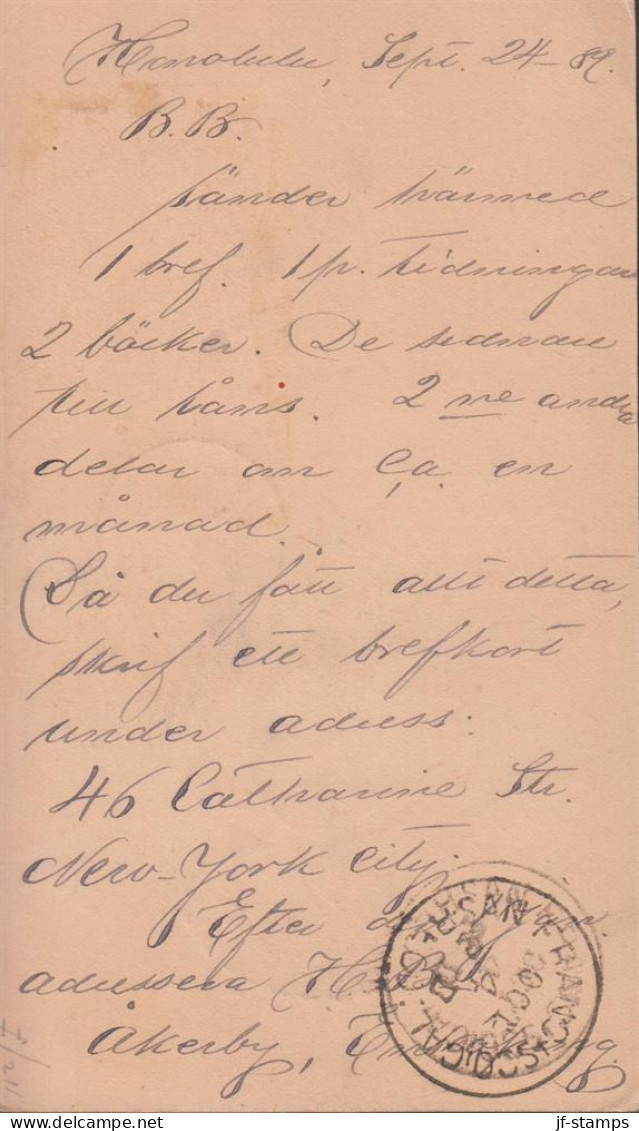 Honolulu, Sept. 24 - 89.
B. B.
Sänder härmed
1 bref. 1 pr. tidningar
2 böcker. De sednare
till Håns. 2 ne andra
delar om Ça en
månad.
Då du fått allt detta,
skrif ett brefkort
under adress:
46 Catharine Str.
New-York City.
Efter
adressera H
Åkerby,
SAN FRANCISCO
jf-stamps